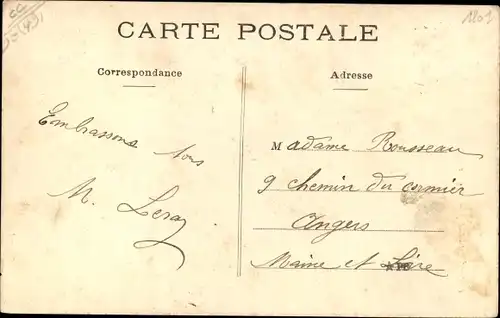 CARTE POSTALE
Correspondance
Adresse
Embrassons tous
M. Leray
Madame Rousseau
9 chemin du cormier
Angers
Maine et Loire
1201